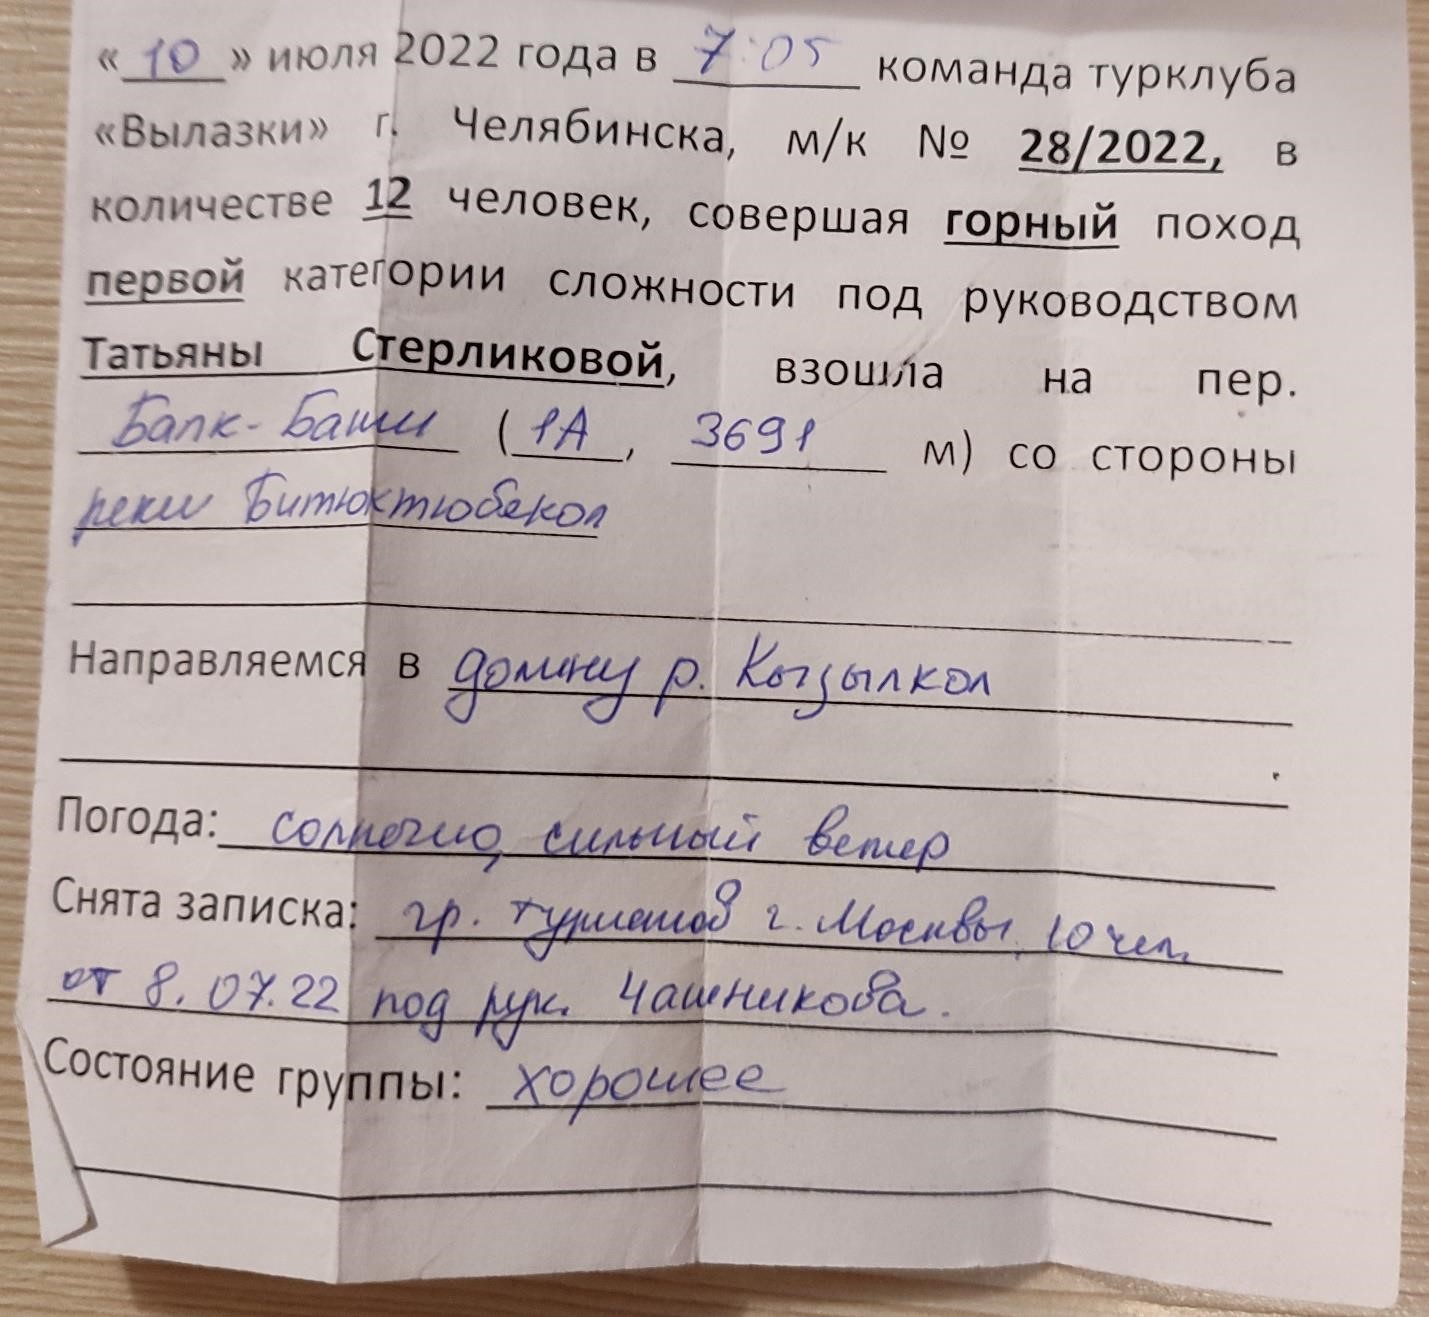 « 10 » июля 2022 года в 7:05 команда турклуба
«Вылазки» г. Челябинска, м/к № 28/2022, в
количестве 12 человек, совершая горный поход
первой категории сложности под руководством
Татьяны Стерликовой, взошла на пер.
Балк-Баши (1А, 3691 м) со стороны
реки Битюктюбекол
Направляемся в долину р. Кызылкол
.
Погода: солнечно, сильный ветер
Снята записка: гр. туристов г. Москвы, 10 чел.
от 8.07.22 под рук. Чашникова.
Состояние группы: хорошее